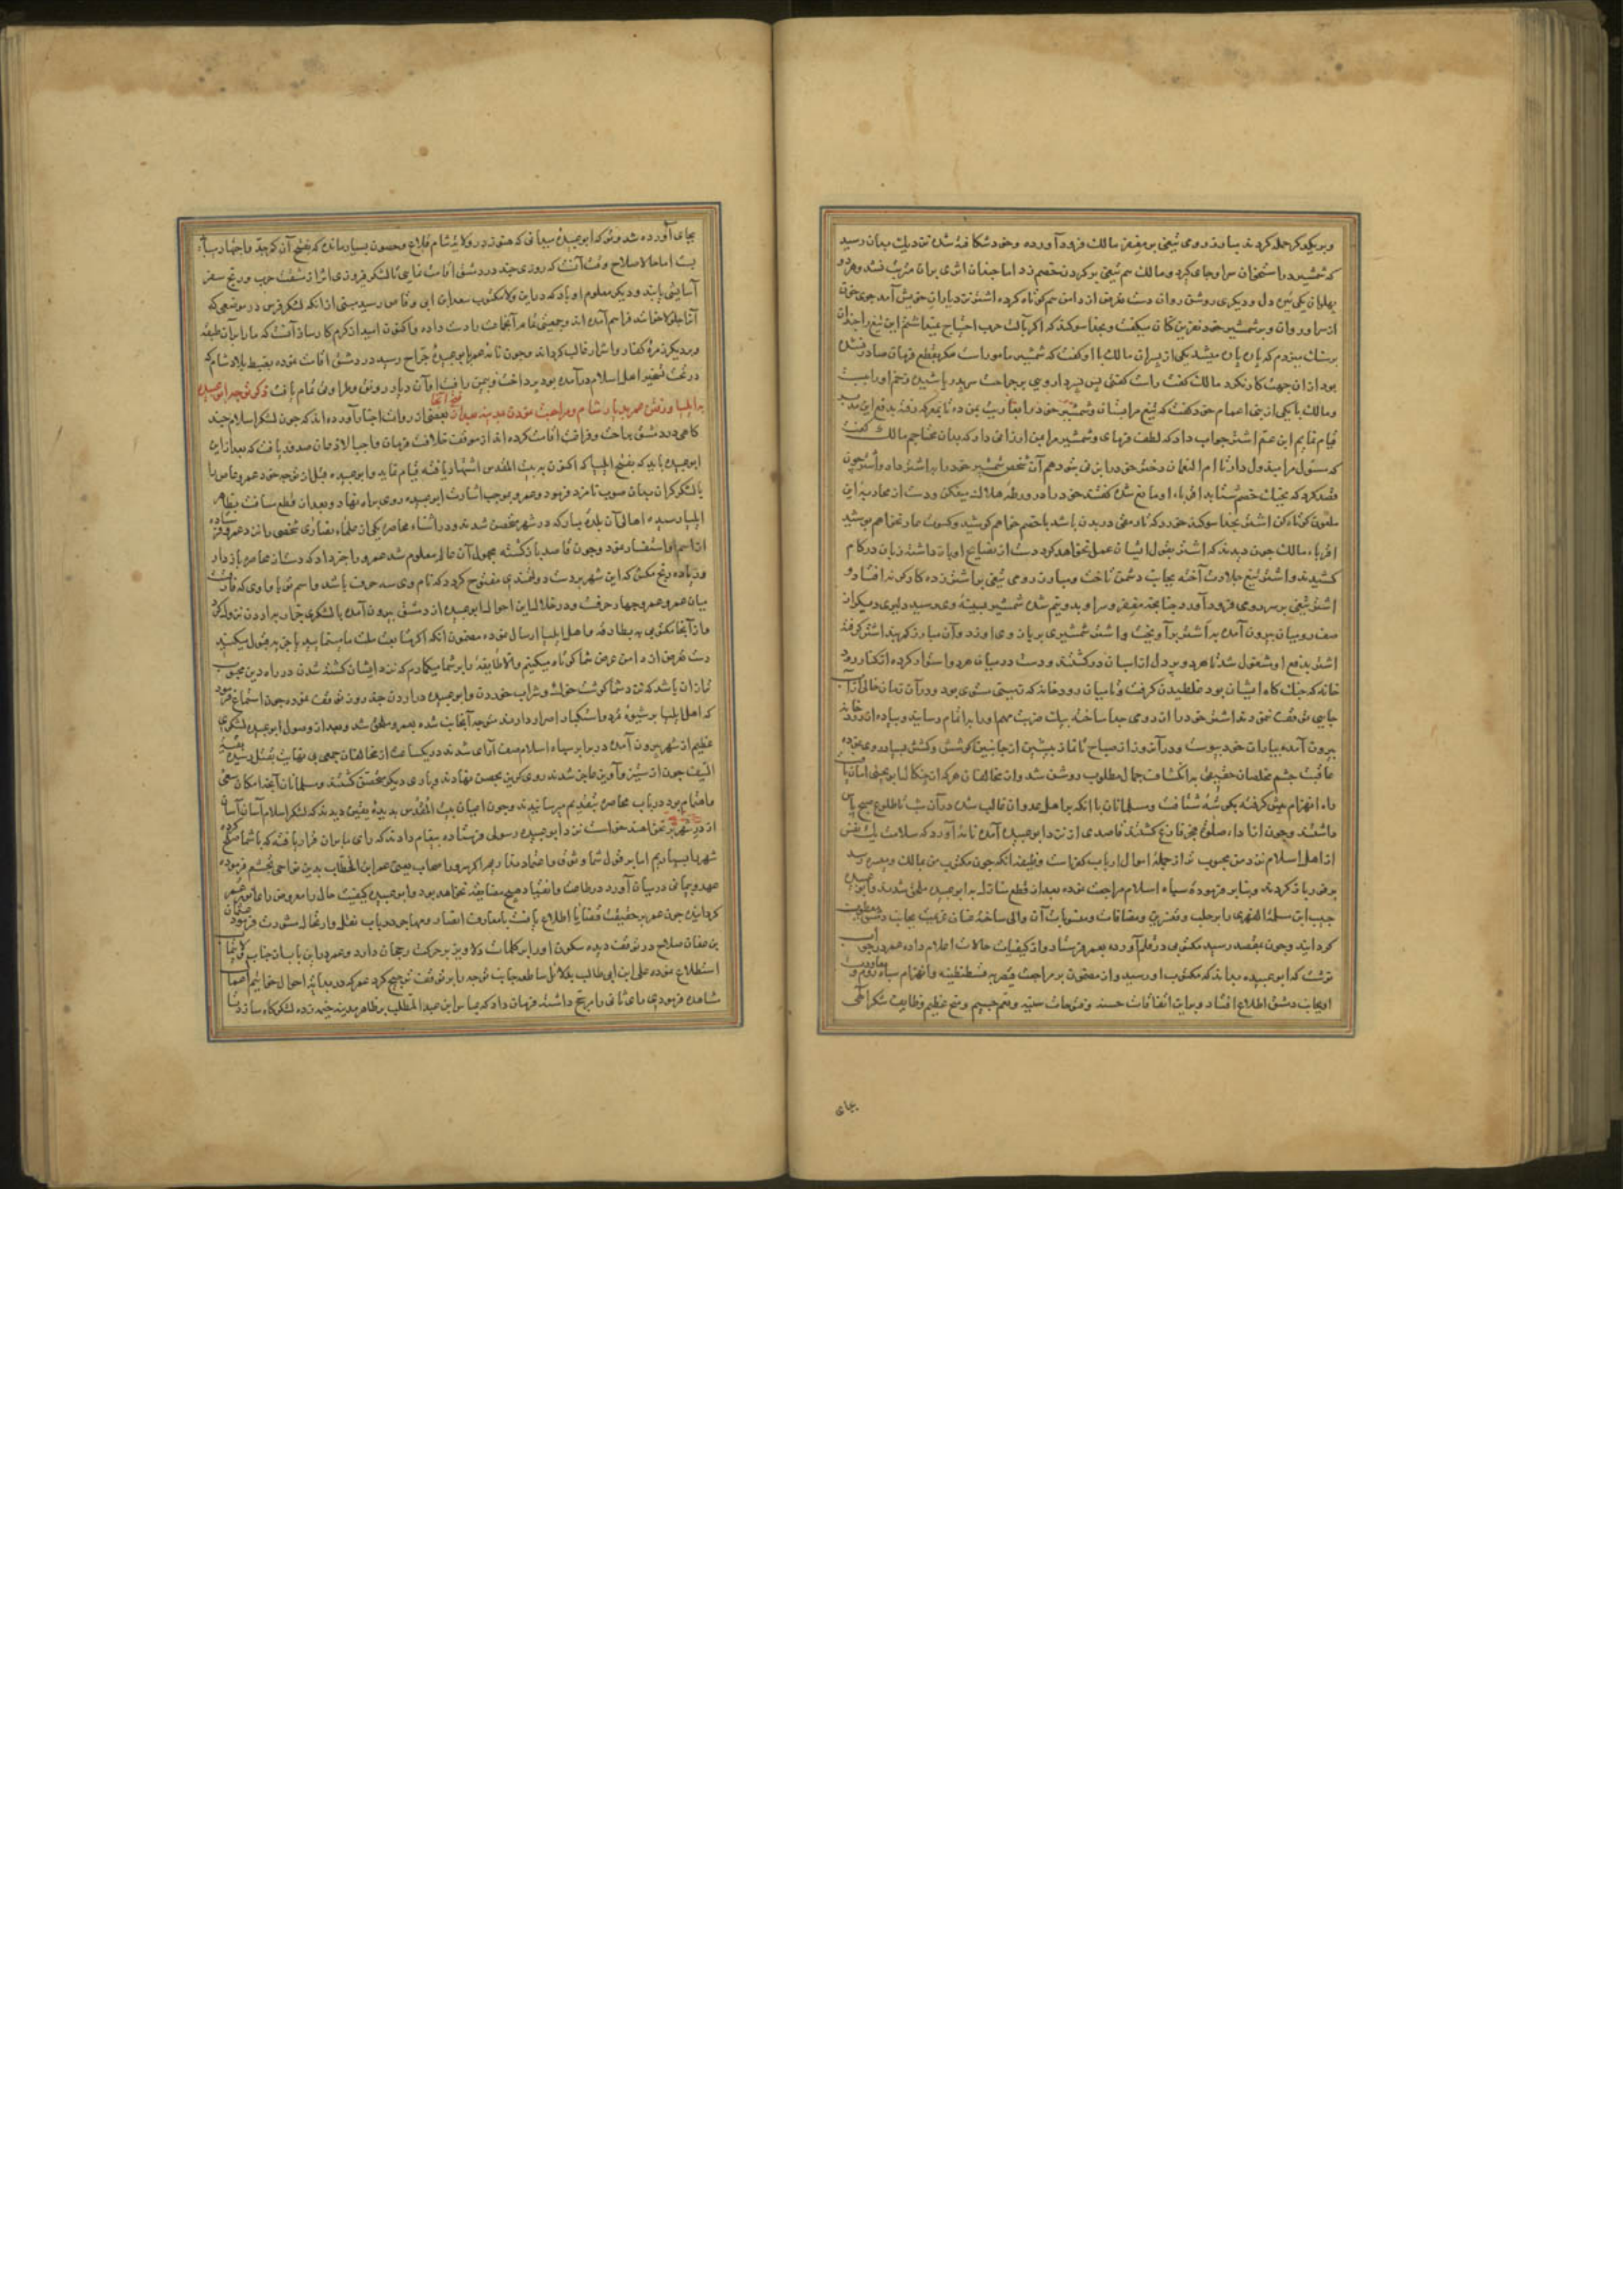 و بر یکدیگر حمله کردند مبارز رومی تیغی بر مغفر مالک فرود آورده و خود شکافته شد
که شمشیر و مالک هم تیغی بر کردن خصم زد اما چندان اثری بران مترتب نشد و هر دو
پهلوان یکی تیره دل و دیکری روشن روان دست تعرض از دامن هم کوتاه کرده اشتر نزد یاران خویش آمد جوی خون
از سر او روان و بر شمشیر خود نفرین کنان میکفت و بخدا سوکند که اکر بآلت حرب احتیاج
بر سنک میزدم که پاره پاره میشد یکی از پسران مالک با او کفت که شمشیر مامور است مکر بقطع فرمان صادر نشده
بود ازان جهت کار نکرد مالک کفت راست کفتی پس
و مالک با یکی از بنی اعمام خود کفت که تیغ مرا بستان و شمشیر خود را
قیام نمایم ابن عم اشتر جواب داد که لطف فرمای و شمشیر مرا بمن ارزانی دار که بدان محتاجم مالک کفت
که مسئول مرا مبذول دار تا ام النعمان دختر خود را بزنی بتو دهم آن شخص شمشیر خود را به اشتر داد و اشتر چون
قصد کرد که بجنک خصم شتابد اقرباء او مانع شده کفتند خود را در ورطه هلاک میفکن و دست از محاربه این
ملعون کوتاه کن اشتر بخدا سوکند خورد که تا رمقی در بدن باشد با خصم خواهم کوشید و کسوت عار نخواهم پوشید
اقرباء مالک چون دیدند که اشتر بقول ایشان عمل نخواهد کرد دست از نصایح او باز داشته زبان در کام
کشیدند و اشتر تیغ جلادت آخته بجانب دشمن تاخت و مبارز رومی تیغی بر اشتر زده کارکر نه افتاد و
اشتر تیغی بر سر رومی فرود آورد چنانچه مغفر و سر او بدو نیم شده شمشیر بسینه وی رسید و دلیری دیکر از
صف رومیان بیرون آمده به اشتر برآویخت و اشتر شمشیری بر بازوی او زد و آن مبارز کمربند اشتر کرفته
اشتر بدفع او مشغول شد تا هر دو پر دل از اسبان در کشتند و دست در میان هم استوار کرده از کنار رود
خانه که جنک کاه ایشان بود غلطیدن کرفتند تا بمیان رودخانه که
جایی توقف نمودند اشتر خود را از رومی جدا ساخته بیک ضربت مهم او را باتمام رسانید و پیاده از رودخانه
بیرون آمده بیاران خود پیوست و در آن روز از صباح تا نماز پیشین از جانبین کوشش و کشش
عاقبت چشم مخلصان حقیقی به انکشاف جمال مطلوب روشن شد و از مخالفان هر که
راه انهزام پیش کرفته بکوشه شتافت و مسلمانان با انکه بر اهل عدوان غالب شدند در آن شب تا طلوع صبح پاس
داشتند و چون از اداء صلوة فجر فارغ کشتند قاصدی از نزد ابو عبیده آمده نامه آورد که سلامت یک نفس
از اهل اسلام نزد من محبوب تر از جمله اموال ارباب کفر است وظیفه آنکه چون مکتوب من بمالک و میسره رسد
بر فور باز کردند و بنابر فرموده سپاه اسلام مراجعت نموده بعد از قطع منازل به ابو عبیده ملحق شدند و ابو عبیده
حبیب ابن سلمة الفهری را بر حلب و قنسرین و مضافات و منسوبات آن والی ساخته عنان عزیمت بجانب دمشق معطوف
کردانید و چون بمقصد رسید مکتوبی در قلم آورده بعمر فرستاد و از کیفیات حالات اعلام داده عمر در جواب
نوشت که ابو عبیده بداند که مکتوب او رسید و از مضمون بر مراجعت قیصر به قسطنطنیه و انهزام سپاه روم و معاودت
او بجانب دمشق اطلاع افتاد و بر این اتفاقات حسنه و فتوحات سنیه و نعم جسیم و منح عظیم وظایف شکر الهی
بجای
بجای آورده شد و تو که ابو عبیده میدانی که هنوز در ولایت شام قلاع و حصون بسیار مانده که بفتح آن کمر جد و اجتهاد
بست اما حالا صلاح وقت آنست که روزی چند در دمشق اقامت نمایی تا لشکر فیروزی اثر از مشقت حرب و رنج سفر
آسایش یابند و دیکر معلوم او باد که در این ولا مکتوب سعد ابن ابی وقاص رسید مبنی از انکه لشکر فرس در موضعی که
آنرا جلولا خوانند فراهم آمده اند و جمعیتی تمام آنجماعت را دست داده و اکنون امید از کرم کارساز آنست که ما را بر آن طبقه
و بر دیکر زمره کفار و اشرار غالب کرداند و چون نامه عمر بابو عبیدة جراح رسید در دمشق اقامت نموده بضبط بلاد شام که
در تحت تسخیر اهل اسلام درآمده بود پرداخت و بیمن رافت او آن دیار رونق و طراوت تمام یافت ذکر توجه ابو عبیده
به ایلیا و رفتن عمر بدیار شام و فتح آنجا و مراجعت نمودن بمدینه بعد از آن بعضی از روات اخبار آورده اند که چون لشکر اسلام چند
کاهی در دمشق براحت و فراغت اقامت کرده اند از موقف خلافت فرمان واجب الاذعان صدور یافت که بعد از این
ابو عبیده باید که بفتح ایلیا که اکنون به بیت المقدس اشتهار یافته قیام نماید و ابو عبیده قبل از توجه خود عمرو عاص را
با لشکر کران بدان صوب نامزد فرمود و عمرو بموجب اشارت ابو عبیده روی براه نهاد و بعد از قطع مسافت بظاهر
ایلیا رسیده اهالی آن بلده مبارکه در شهر متحصن شدند و در اثناء محاصره یکی از علماء نصاری شخصی را نزد عمرو فرستاده
از اسم او استفسار نمود و چون قاصد باز کشته مجهول آن عالم معلوم شد عمرو را خبر داد که دست از محاصره باز دار
و زیاده رنج مکش که این شهر بر دست دولتمندی مفتوح کردد که نام وی سه حرف باشد و اسم تو
میان عمر و عمرو چهار حرفست و در خلال این احوال ابو عبیده از دمشق بیرون آمده با لشکری جرار به اردن نزول کرد
و از آنجا مکتوبی به بطارقه و اهل ایلیا ارسال نموده مضمون آنکه اکر متابعت ملت ما مینمایید یا جزیه قبول میکنید
دست تعرض از دامن عرض شما کوتاه میکنیم و الا طایفه را بر شما میکمارم که نزد ایشان کشته شدن در راه دین محبوب
تر از آن باشد که نزد شما کوشت خوک و شراب خوردن و ابو عبیده در اردن چند روز توقف نموده چون استماع فرمود
که اهل ایلیا بر شیوه تمرد و استکبار اصرار دارند متوجه آنجانب شده بعمرو ملحق شد و بعد از وصول ابو عبیده لشکری
عظیم از شهر بیرون آمده در برابر سپاه اسلام صف آرای شدند در یکساعت از مخالفان جمعی بی نهایت بقتل رسیده بقیة
السیف چون از ستیز و آویز عاجز شدند روی کریز بحصن نهادند و باری دیکر متحصن کشتند و مسلمانان آنچه امکان سعی
و اهتمام بود در باب محاصره بتقدیم میرسانیدند و چون اعیان بیت المقدس بدیده یقین دیدند که لشکر اسلام آسان آسان
از در شهر بر نخواهند خواست نزد ابو عبیده رسولی فرستاده پیغام دادند که رای ما بران قرار یافته که با شما صلح کرده
شهر را بسپاریم اما بر قول شما وثوق و اعتماد نداریم اکر سرور اصحاب یعنی عمر ابن الخطاب بدین نواحی تجشم فرموده
عهد و پیمانی در میان آورد در طاعت و انقیاد هیچ مضایقه نخواهد بود و ابو عبیده کیفیت حال را معروض رای عمر
کردانیده چون عمر بر حقیقت قضایا اطلاع یافت با معارف انصار و مهاجر در باب نقل و ارتحال مشورت فرمود عثمان
بن عفان صلاح در توقف دیده سکون او را بر حرکت رجحان داد و عمر در این باب از جناب ولایت مآب
استطلاع نموده علی ابن ابی طالب بدلایل ساطعه جانب توجه را بر توقف ترجیح کرد
فرمود رای ثانی را مرجح داشته فرمان داد که عباس ابن عبد المطلب بر ظاهر مدینه خیمه زده لشکرکاه سازد